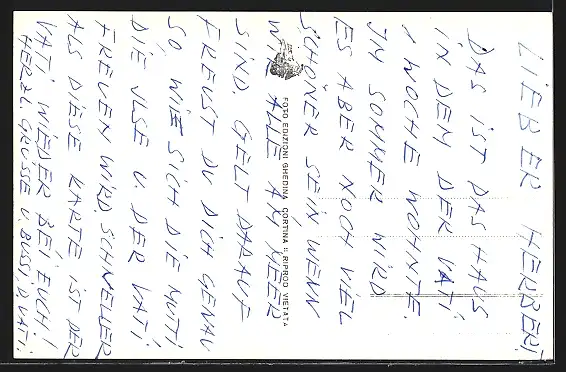 LIEBER HERBERT!
DAS IST DAS HAUS
IN DEM DER VATI
1 WOCHE WOHNTE.
IM SOMMER WIRD
ES ABER NOCH VIEL
SCHÖNER SEIN WENN
WIR ALLE AM MEER
SIND. GELT DARAUF
FREUST DU DICH GENAU
SO WIE SICH DIE MUTTI,
DIE ILSE U. DER VATI
FREUEN WIRD. SCHNELLER
ALS DIESE KARTE IST DER
VATI WIEDER BEI EUCH!
HERZL. GRÜSSE U. BUSSI, D. VATI.
FOTO EDIZIONI GHEDINA CORTINA - RIPROD. VIETATA